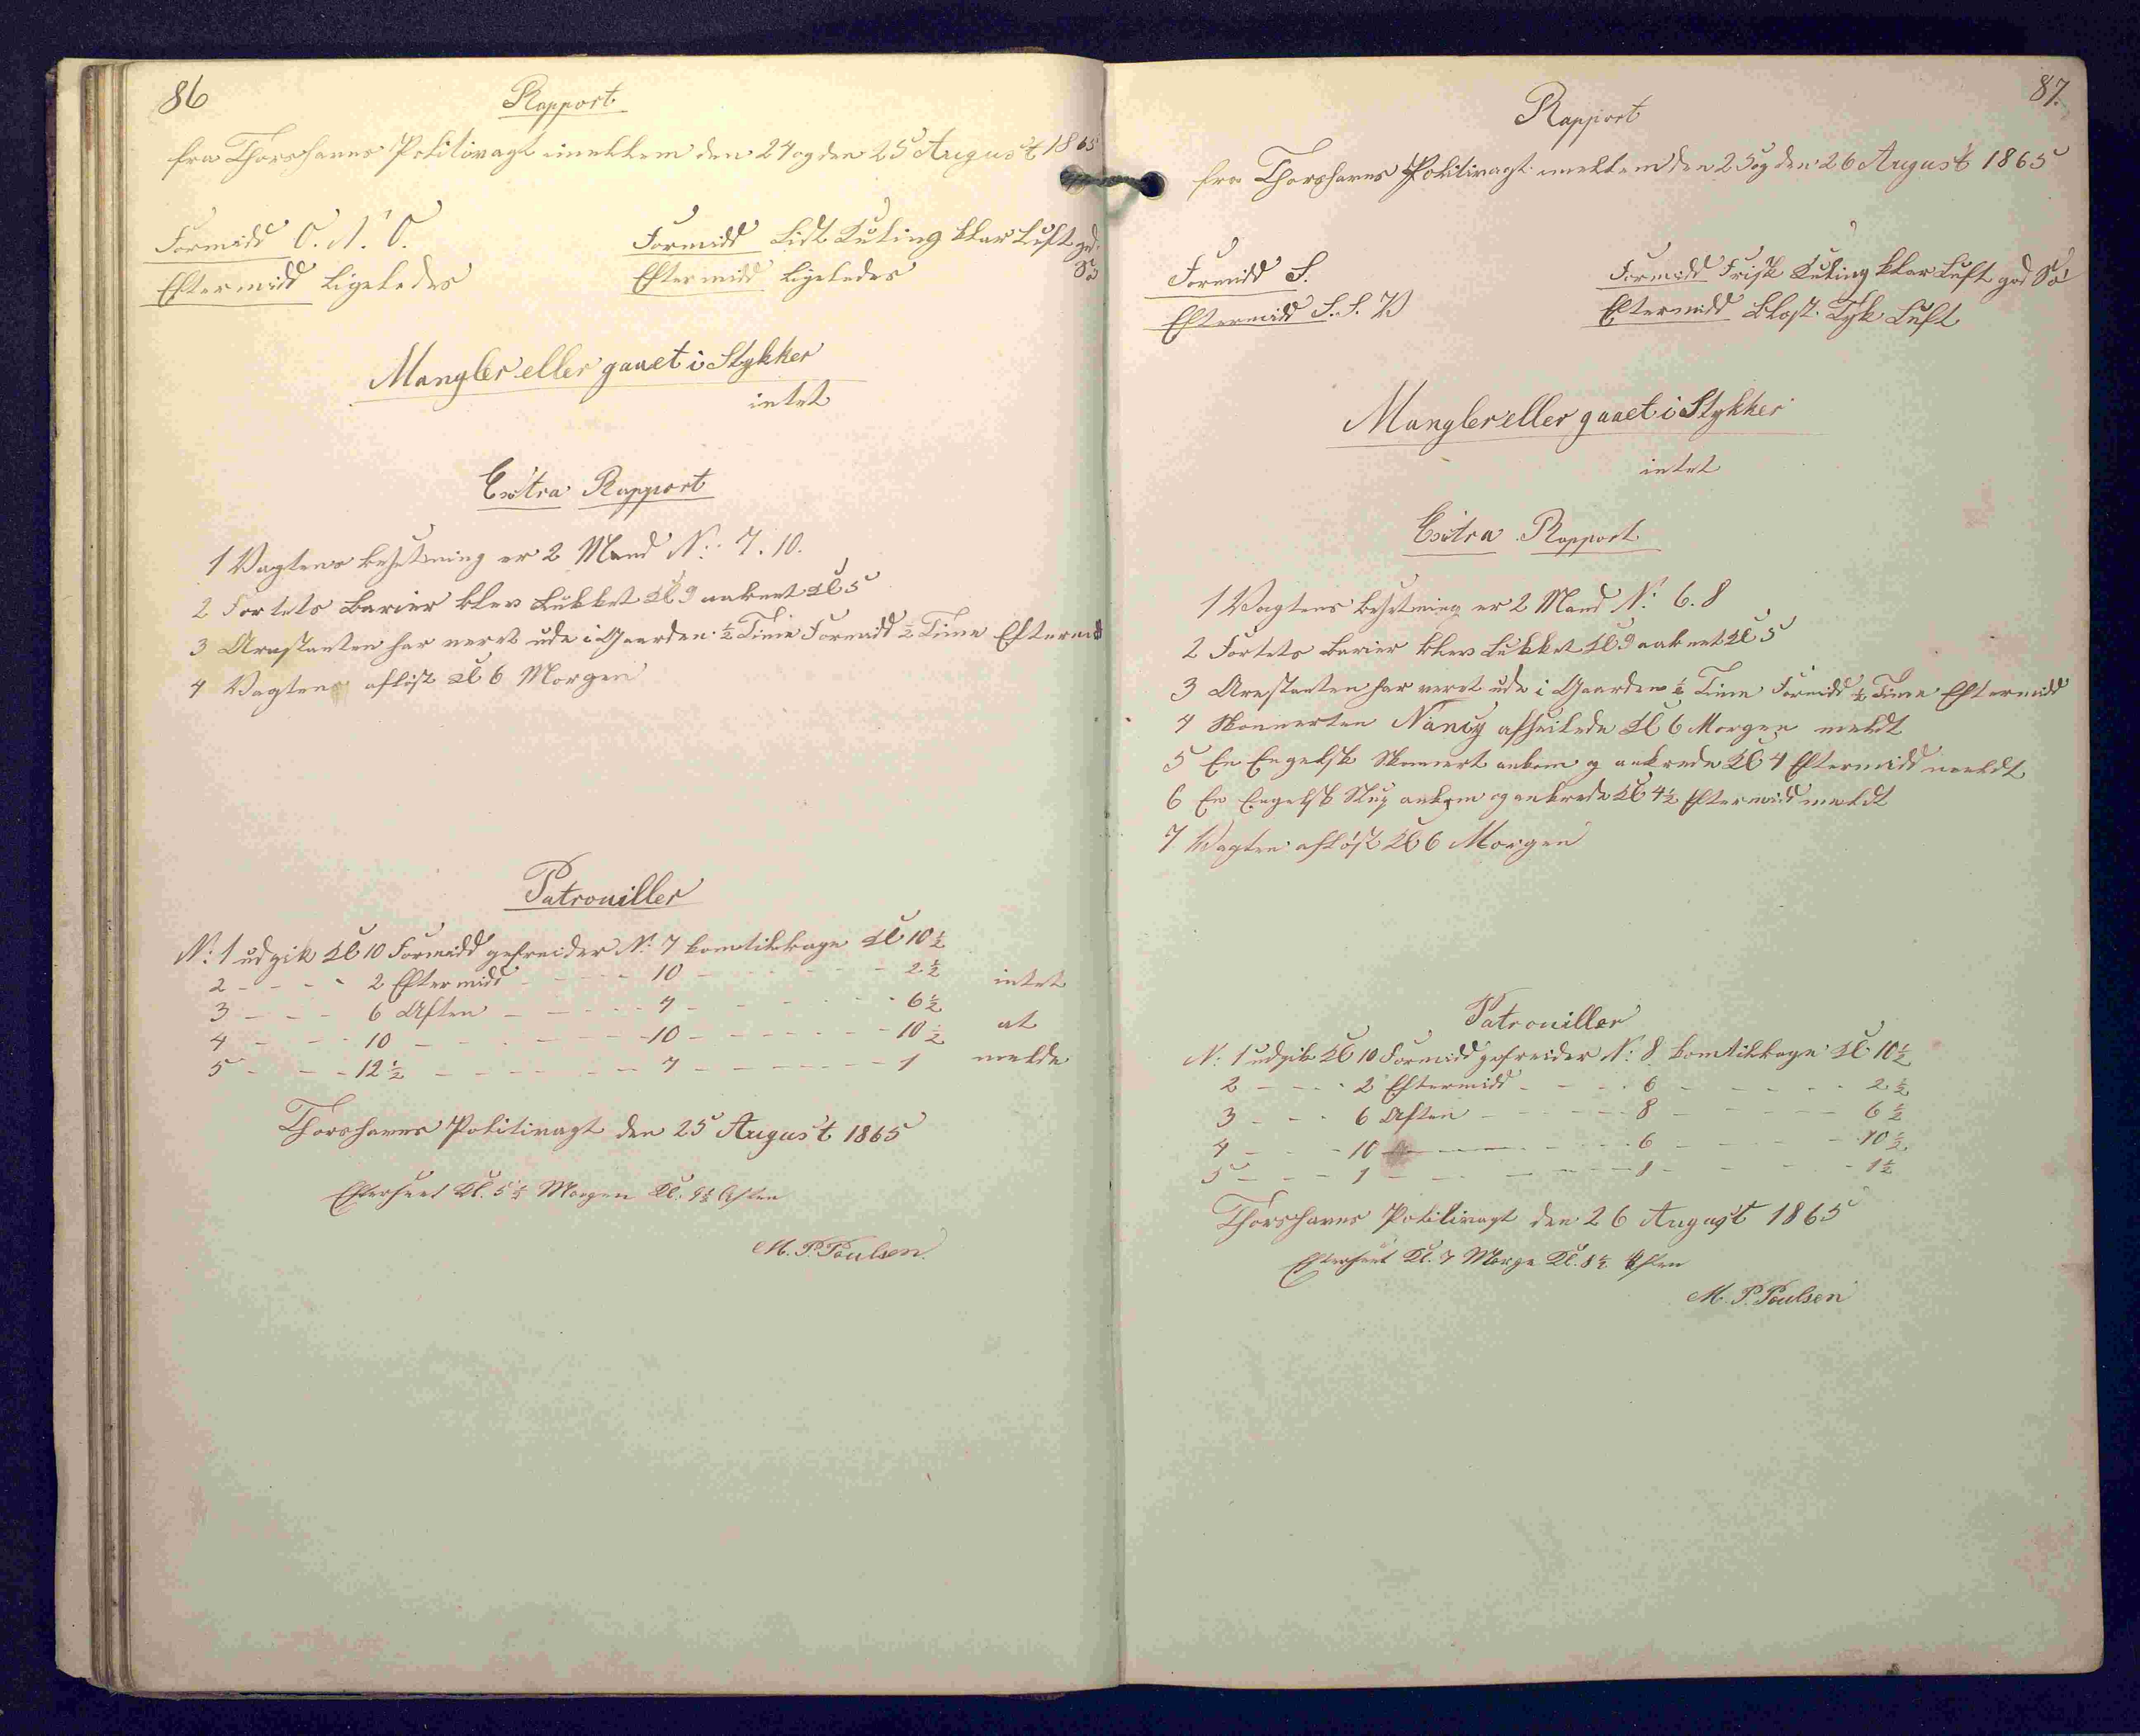 86
Rapport
fra Thorshavns Politivagt imellem den 24 og den 25 August 1865
Formidd O. N. O.
Eftermidd ligeledes
Formidd lidt Kuling klar Luft god
Sø
Eftermidd ligeledes
Mangler eller gaaet i Stykker
intet
Extra Rapport
1 Vagtens besetning er 2 Mand N: 7. 10.
2 Fortets Barier blev lukket Kl 9 aabnet Kl 5
3 Arestanten har veret ude i Gaarden ½ Time Formidd ½ Time Eftermidd
4 Vagten afløst Kl 6 Morgen
Patrouiller
N: 1 udgik Kl 10 Formidd gefreider N: 7 komtilbage Kl 10½
2 - - - - 2 Eftermidd - - - - 10 - - - - - - 2½ intet
3 - - - 6 Aften - - - - - 7 - - - - - - 6½
4 - - - 10 - - - - - - - 10 - - - - - - 10½ at
5 - - - 12½ - - - - - - 7 - - - - - - 1 melde
Thorshavns Politivagt den 25 August 1865
Efterseet Kl. 5½ Morgen Kl. 9½ Aften
M. P. Poulsen
87.
Rapport
fra Thorshavns Politivagt imellem den 25 og den 26 August 1865
Formidd S.
Eftermidd S. S. V
Formidd Frisk Kuling klar Luft god Sø
Eftermidd Blæst. Tyk Luft
Mangler eller gaaet i Stykker
intet
Extra Rapport
1 Vagtens besetning er 2 Mand N: 6. 8
2 Fortets Barier blev lukket Kl 9 aabnet Kl 5
3 Arestanten har veret ude i Gaarden ½ Time Formidd ½ Time Eftermidd
4 Skonnerten Nancy afseilede Kl 6 Morgen meldt
5 En Engelsk Skonnert ankom og ankrede Kl 4 Eftermidd meeldt
6 En Engelsk Slup ankom og ankrede Kl 4½ Eftermidd meldt
7 Vagten afløst Kl 6 Morgen
Patrouiller
N: 1 udgik Kl 10 Formidd gefreider N: 8 komtilbage Kl 10½
2 - - - - 2 Eftermidd - - - - 6 - - - - - - 2½
3 - - - 6 Aften - - - - - 8 - - - - - - 6½
4 - - - 10 - - - - - - - 6 - - - - - - 10½
5 - - - 1 - - - - - - - 1 - - - - - - 1½
Thorshavns Politivagt den 26 August 1865
Efterseet Kl. 7 Morge Kl. 8½ Aften
M. P. Poulsen